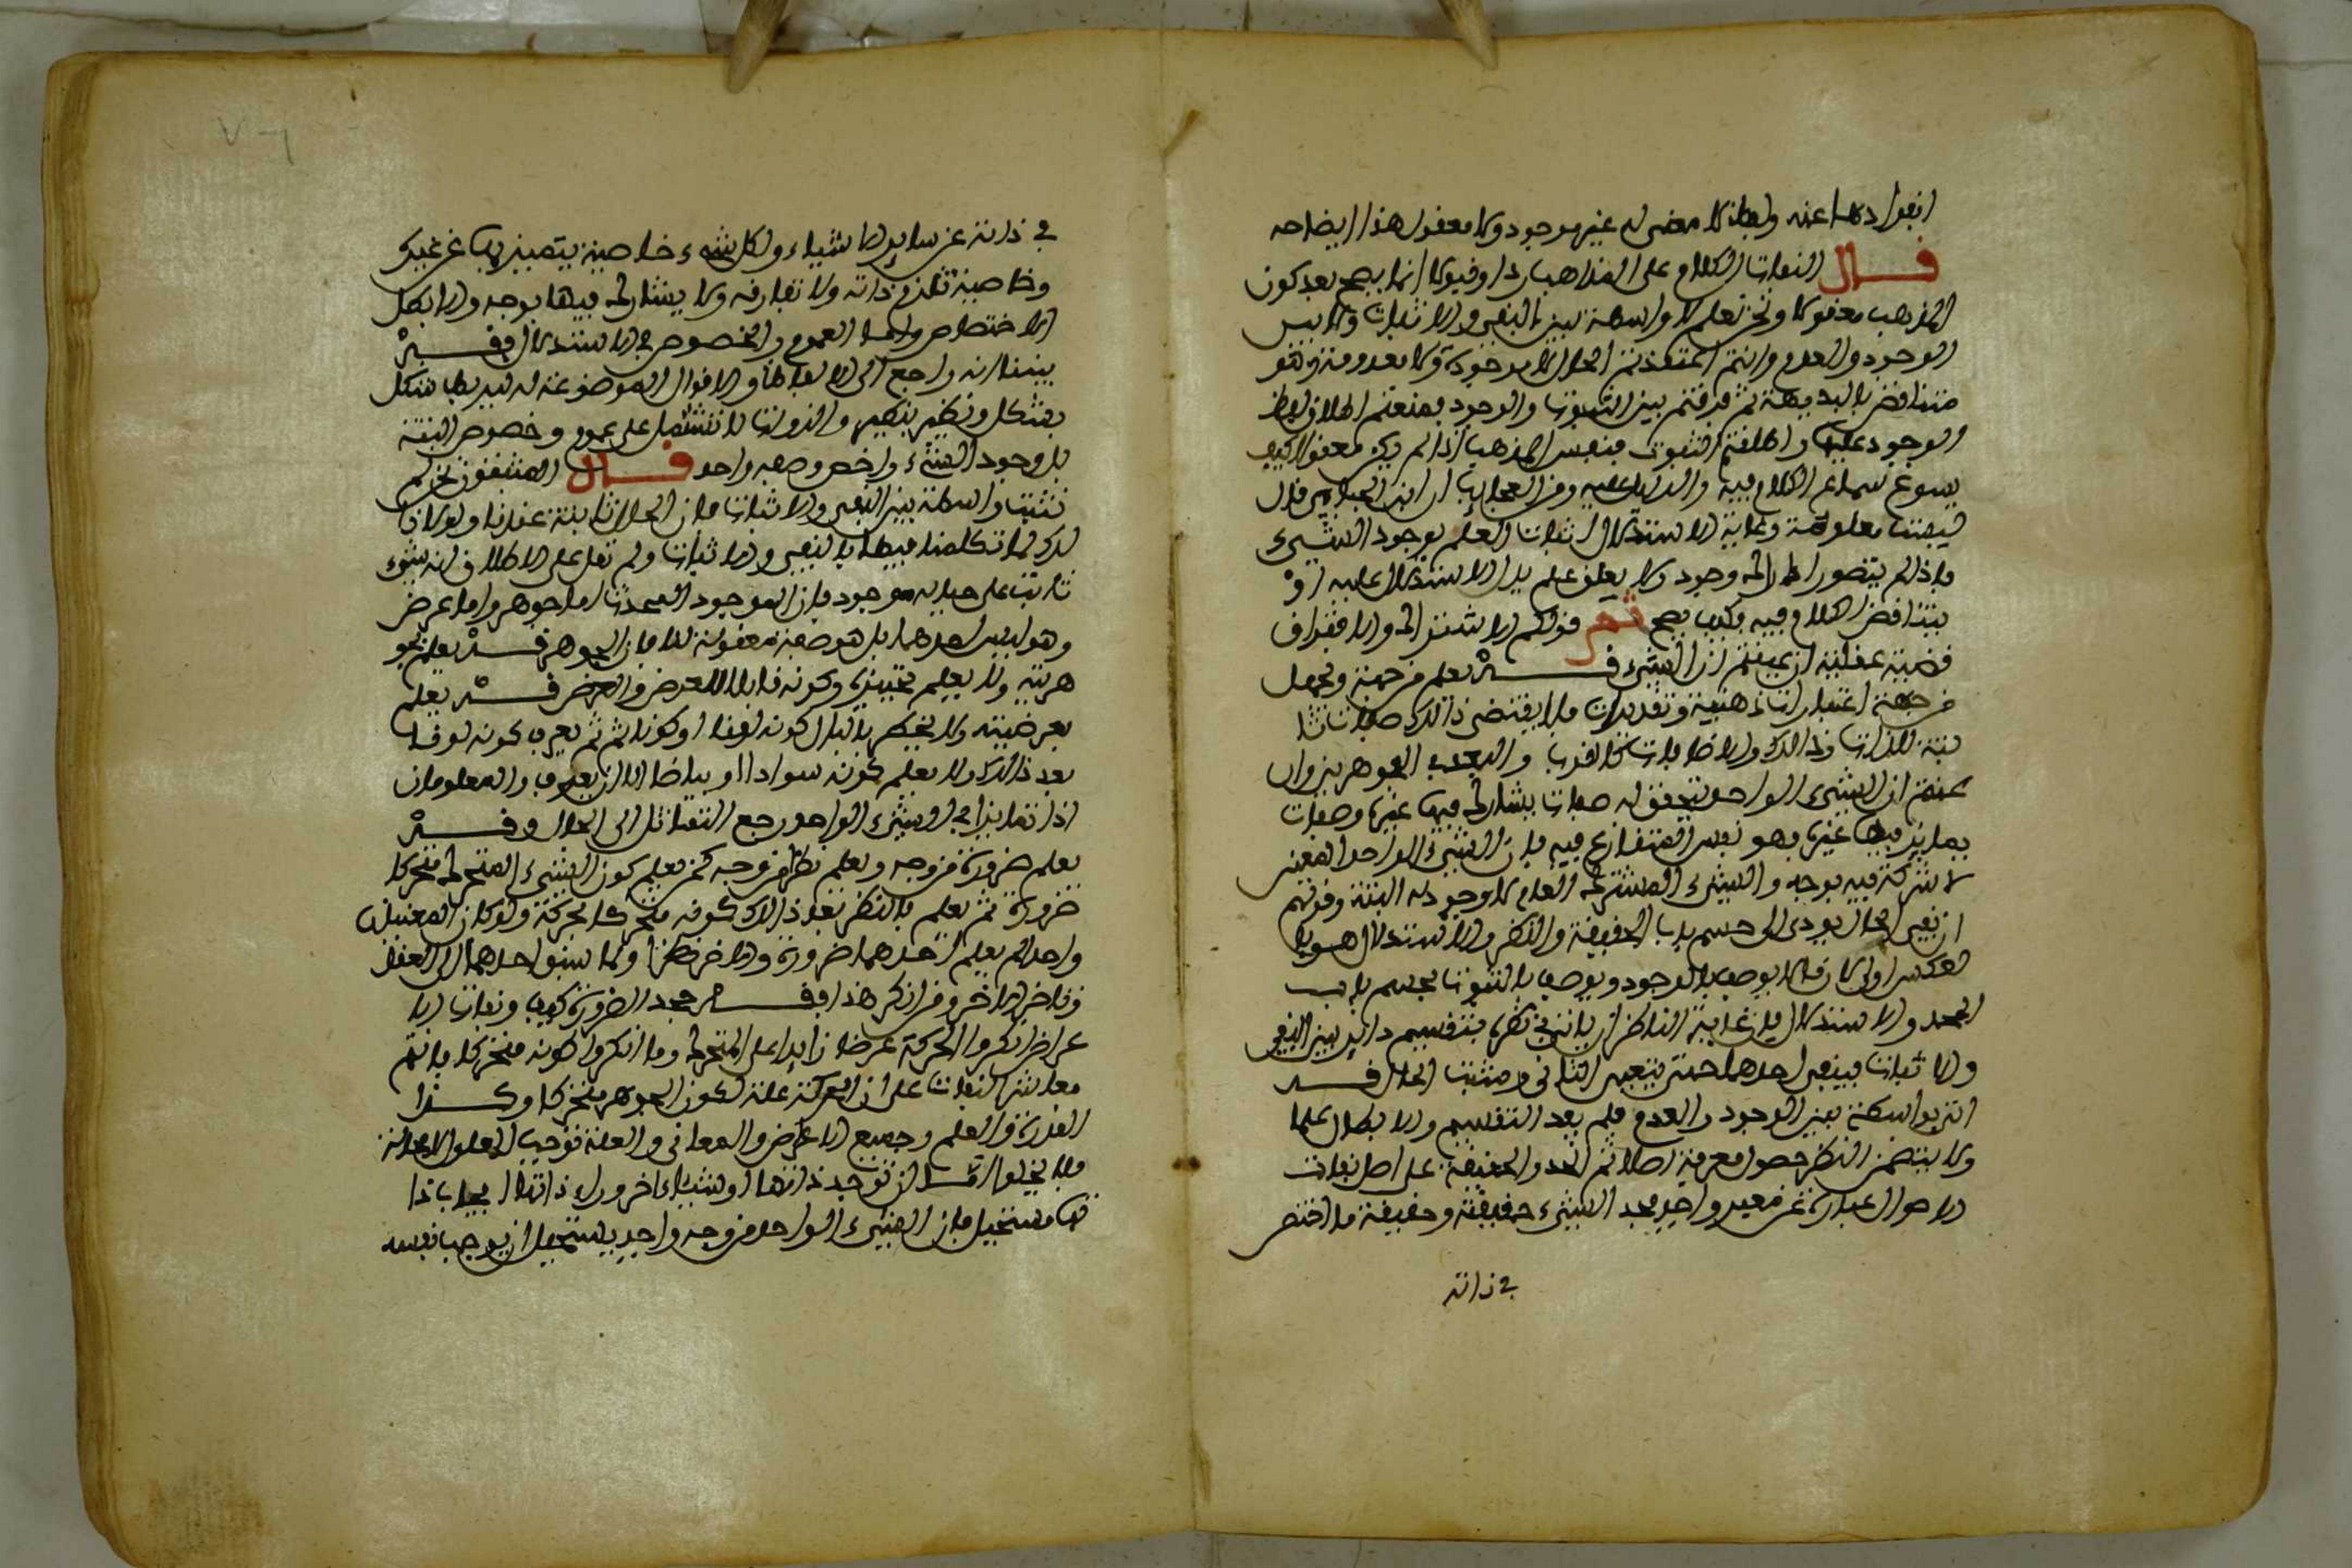 انفرادها عنه ولفظا لا معنى له غير موجود ولا معقول هذا ايضاحه
قال النفاة الكلام على المذاهب ردا وقبولا انما يصح بعد كون
المذهب معقولا ونحن نعلم الا واسطة بين النفي والاثبات ولا بين
الوجود والعدم وانتم اعتقدتم الحال لا موجودة ولا معدومة وهو
متناقض بالبديهة ثم فرقتم بين الثبوت والوجود فمنعتم اطلاق لفظ
الوجود عليها واطلقتم الثبوت فنفس المذهب اذا لم يكن معقولا كيف
يسوغ سماع الكلام فيه والدليل عليه ومن العجايب ان ابن الجبايي قال
ليست معلومة وغاية الاستدلال اثبات العلم بوجود الشيء
فاذا لم يتصور له وجود ولا تعلق علم بدا الاستدلال عليه او
يتناقض الكلام فيه فكيف يصح ثم قولكم الاشتراك والافتراق
قضية عقلية ان عنيتم ان الشيء قد يعلم من جهة ويجهل
من جهة اعتبارات ذهنية وتقديرات فلا يقتضي ذالك صفات ثا
بتة للذوات وذالك والاضافات كالقرب والبعد بين الجوهرين وان
عنيتم ان الشيء الواحد تتحقق له صفات يشارك فيها غيره وصفات
يمايز فيها غيره فهو نفس المتنازع فيه فان الشيء الواحد المعين
لا شركة فيه بوجه والشيء المشترك العام لا وجود له البتة وقولهم
ان نفي الحال يودي الى حسم باب الحقيقة والنظر والاستدلال هو با
لعكس اولى لان ما لا يوصف بالوجود ويوصف بالثبوت يحسم باب
الحد والاستدلال فان غاية الناظر ان ياتي في نظره بتقسيم داير بين النفي
والاثبات فينفي احدهما حتى يتعين الثاني ومثبت الحال قد
اتى بواسطة بين الوجود والعدم فلم يفد التقسيم والابطال علما
ولا يتضمن النظر حصول معرفة اصلا ثم الحد والحقيقة على اصل نفاة
الاحوال عبارتان عن معبر واحد فحد الشيء حقيقته وحقيقة ما اختص
في ذاته
في ذاته عن ساير الاشياء ولكل شيء خاصية يتميز بها عن غيره
وخاصيته تلزم ذاته ولا تفارقه ولا يشارك فيها بوجه والا بطل
الاختصاص واما العموم والخصوص في الاستدلال فقد
بينا انه راجع الى الالفاظ والاقوال الموضوعة له ليربط شكل
بشكل ونظير بنظير والذوات لا تشتمل على عموم وخصوص البتة
بل وجود الشيء واخص وصفه واحد قال المثبتون نحن لم
نثبت واسطة بين النفي والاثبات فان الحال ثابتة عندنا ولولا ذا
لك لما تكلمنا فيها بالنفي والاثبات ولم نقل على الاطلاق انه شيء
ثابت على حياله موجود فان الموجود المحدث اما جوهر واما عرض
وهو ليس احدهما بل هو صفة معقولة لهما فان الجوهر قد يعلم بجو
هريته ولا يعلم تحيزه وكونه قابلا للعرض والعرض قد يعلم
بعرضيته ولا يخطر بالبال كونه لونا او كونا ثم يعرف كونه لونا
بعد ذالك ولا يعلم كونه سوادا او بياضا الا ان يعرف والمعلومان
اذا تمايزا في الشيء الواحد رجع التمايز الى الحال وقد
يعلم ضرورة من وجه ويعلم نظرا من وجه كمن يعلم كون الشيء المتحرك متحركا
ضرورة ثم يعلم بالنظر بعد ذالك كونه متحركا بحركة ولو كان المعنيان
واحدا لم يعلم احدهما ضرورة والاخر نظرا ولما سبق احدهما الى العقل
وتاخر الاخر ومن انكر هذا فقد جحد الضرورة كيف ونفاة الا
عراض انكروا الحركة عرضا زايدا على المتحرك وما انكروا كونه متحركا فانتم
معاشر النفاة على ان الحركة علة لكون الجوهر متحركا وكذا
القدرة والعلم وجميع الاعراض والمعاني والعلة توجب المعلول لا محالة
فلا يخلوا اما ان توجب ذاتها او شيئا اخر وراء ذاتها ايجابا
مستحيل فان الشيء الواحد من وجه واحد يستحيل ان يوجب نفسه